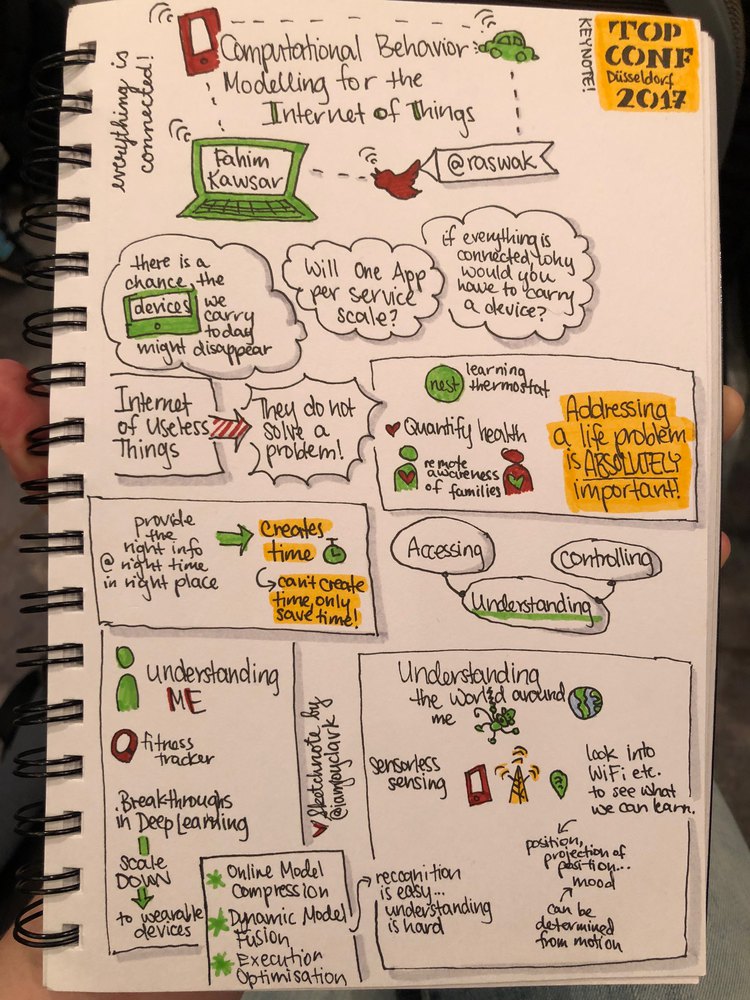 everything is
connected!
Computational Behavior
Modelling for the
Internet of Things
KEYNOTE!
TOP
CONF
Düsseldorf
2017
Fahim
Kawsar
@raswak
there is a
chance, the
devices we
carry
today
might disappear
Will One App
per service
scale?
if everything is
connected, why
would you
have to carry
a device?
Internet
of Useless
Things
They do not
solve a
problem!
nest
learning
thermostat
Quantify health
remote
awareness
of families
Addressing
a life problem
is ABSOLUTELY
important!
provide
the
right info
@ right time
in right place
creates
time
can't create
time, only
save time!
Accessing
controlling
Understanding
understanding
ME
fitness
tracker
Breakthroughs
in Deep Learning
scale
DOWN
to wearable
devices
Sketchnote by
@iamjoyclark
Online Model
Compression
Dynamic Model
Fusion
Execution
Optimisation
Understanding
the world around
me
sensorless
sensing
look into
WiFi etc.
to see what
we can learn.
position,
projection of
position...
mood
can be
determined
from motion
recognition
is easy...
understanding
is hard